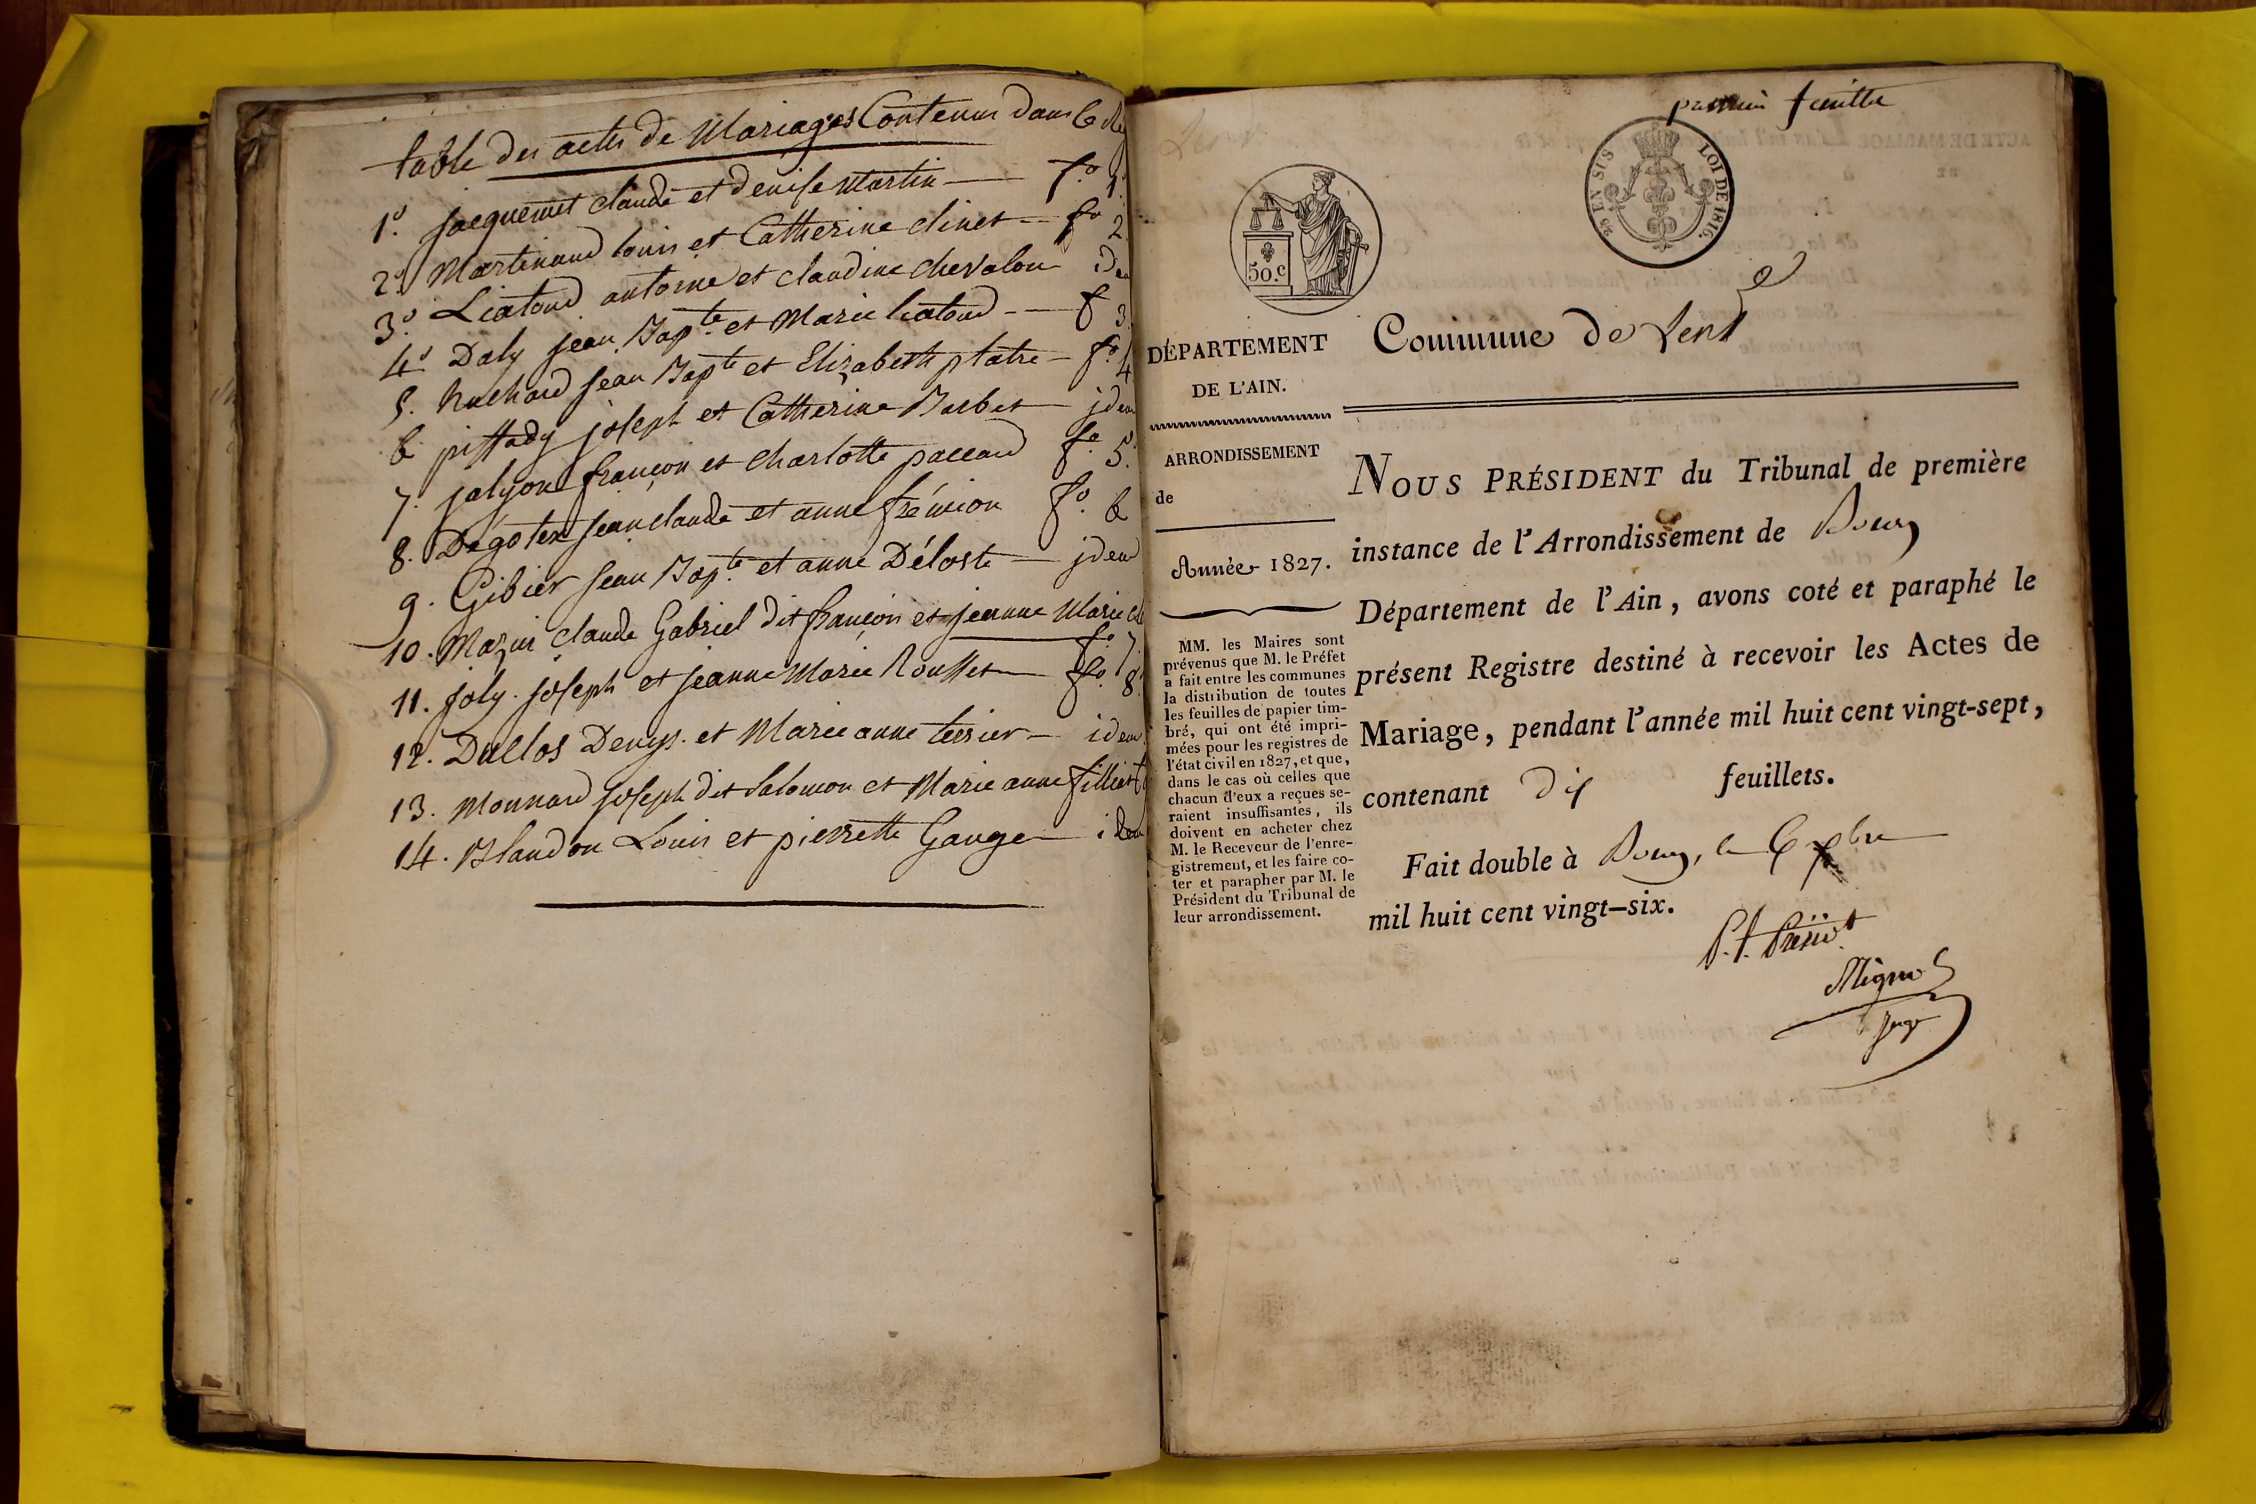 table des actes de Mariages Contenus dans le
1.° Jacquemet claude et denise Martin — f.° 1.
2.° Martinand louis et Catherine clinet — f.° 2
3.° Liatoud antoine et claudine chevalon idem
4.° Daly jean Bap.te et Marie liatoud — f 3.
5. Nuchard jean Bapte et Elizabeth platre — f.° 4
6 piffady joseph et Catherine Barbet — jdem
7. jalyon françois et charlotte paccard f.° 5.
8. Dégotex jean claude et anne frémion f.° 6
9. Gibier jean Bap.te et anne Déloste — jdem
10. Mazui claude Gabriel dit françois et jeanne Marie
f.° 7.
11. joly joseph et jeanne Marie Rousset — f.° 8.
12. Duclos Denys et Marie anne terrier — idem
13. Monnard joseph dit Salomon et Marie anne filliet
14. Blandon Louis et pierrette Gauge — idem
premier feuillet
50.c
25 EN SUS
LOI DE 1816.
DÉPARTEMENT
DE L'AIN.
Commune de Lent
ARRONDISSEMENT
de
Année 1827.
MM. les Maires sont
prévenus que M. le Préfet
a fait entre les communes
la distribution de toutes
les feuilles de papier tim-
bré, qui ont été impri-
mées pour les registres de
l'état civil en 1827, et que,
dans le cas où celles que
chacun d'eux a reçues se-
raient insuffisantes, ils
doivent en acheter chez
M. le Receveur de l'enre-
gistrement, et les faire co-
ter et parapher par M. le
Président du Tribunal de
leur arrondissement.
NOUS PRÉSIDENT du Tribunal de première
instance de l'Arrondissement de Bourg
Département de l'Ain, avons coté et paraphé le
présent Registre destiné à recevoir les Actes de
Mariage, pendant l'année mil huit cent vingt-sept,
contenant dix feuillets.
Fait double à Bourg, le 6 xbre
mil huit cent vingt-six.
P. l. Présid.t
juge